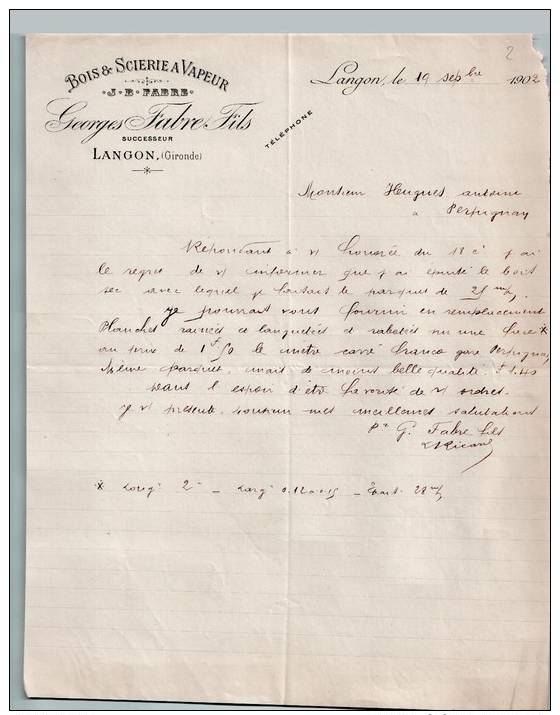 2
BOIS & SCIERIE A VAPEUR
J. B. FABRE
Georges Fabre Fils
SUCCESSEUR
LANGON, (Gironde)
TÉLÉPHONE
Langon, le 19 sepbre 1902
Monsieur Hugues antoine
a Perpignan
Répondant à v/ honorée du 18 ct j'ai
le regret de v/ informer que j'ai épuisé le bois
sec avec lequel je faisait le parquet de 25 m/m
je pourrait vous fournir en remplacement
Planches rainées et languetées et rabotées sur une face *
au prix de 1f50 le mètre carré franco gare Perpignan
Même parquet, mait de moint belle qualité. f 1.40
Dant l'espoir d'être favorisé de v/ ordres.
J v/ présente, mes meilleures salutations
Pr G. Fabre fils
Ricard
* Longr 2 m — Largr 0.12 a 0.15 — Epaist 28 m/m